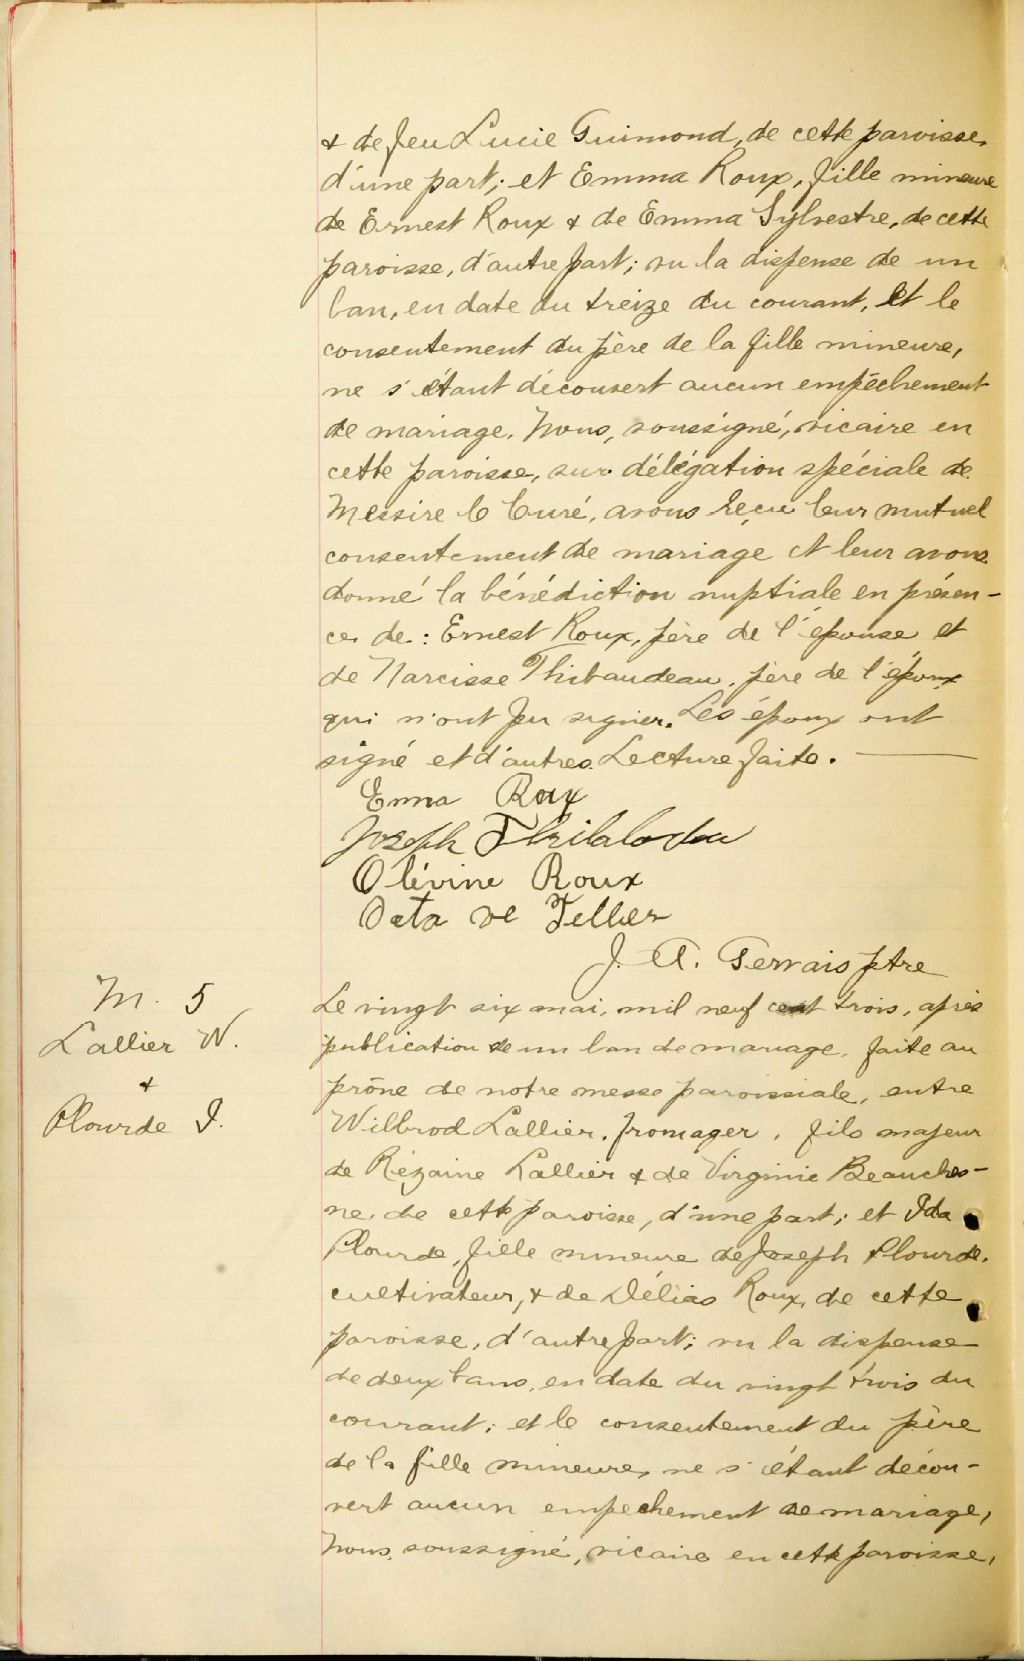 & de feu Lucie Guimond, de cette paroisse,
d'une part; et Emma Roux, fille mineure
de Ernest Roux & de Emma Sylvestre, de cette
paroisse, d'autre part; vu la dispense de un
ban, en date du treize du courant, et le
consentement du père de la fille mineure,
ne s'étant découvert aucun empêchement
de mariage, Nous, soussigné, vicaire en
cette paroisse, sur délégation spéciale de
Messire le Curé, avons reçu leur mutuel
consentement de mariage et leur avons
donné la bénédiction nuptiale en présen-
ce de: Ernest Roux, père de l'épouse et
de Narcisse Thibaudeau, père de l'époux
qui n'ont pu signer. Les époux ont
signé et d'autres. Lecture faite.
Emma Roux
Joseph
Olévine Roux
J. A. Gervais ptre
M. 5
Lallier W.
&
Plourde I.
Le vingt six mai, mil neuf cent trois, après
publication de un ban de mariage, faite au
prône de notre messe paroissiale, entre
Wilbrod Lallier, fromager, fils majeur
de Rézaine Lallier & de Virginie Beauches-
ne, de cette paroisse, d'une part; et Ida
Plourde, fille mineure de Joseph Plourde,
cultivateur, & de Délias Roux, de cette
paroisse, d'autre part; vu la dispense
de deux bans, en date du vingt trois du
courant; et le consentement du père
de la fille mineure, ne s'étant décou-
vert aucun empechement de mariage,
Nous, soussigné, vicaire en cette paroisse,